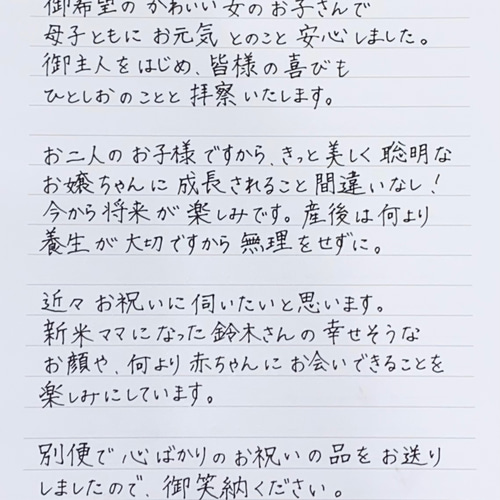 御希望の かわいい女のお子さんで
母子ともに お元気 とのこと 安心しました。
御主人をはじめ、皆様の喜びも
ひとしおのことと 拝察いたします。
お二人の お子様ですから、きっと美しく 聡明な
お嬢ちゃんに 成長されること 間違いなし！
今から将来が 楽しみです。産後は何より
養生が 大切ですから 無理をせずに。
近々 お祝いに伺いたいと思います。
新米ママになった 鈴木さんの 幸せそうな
お顔や、何より赤ちゃんに お会いできることを
楽しみにしています。
別便で 心ばかりのお祝いの品をお送り
しましたので、御笑納ください。